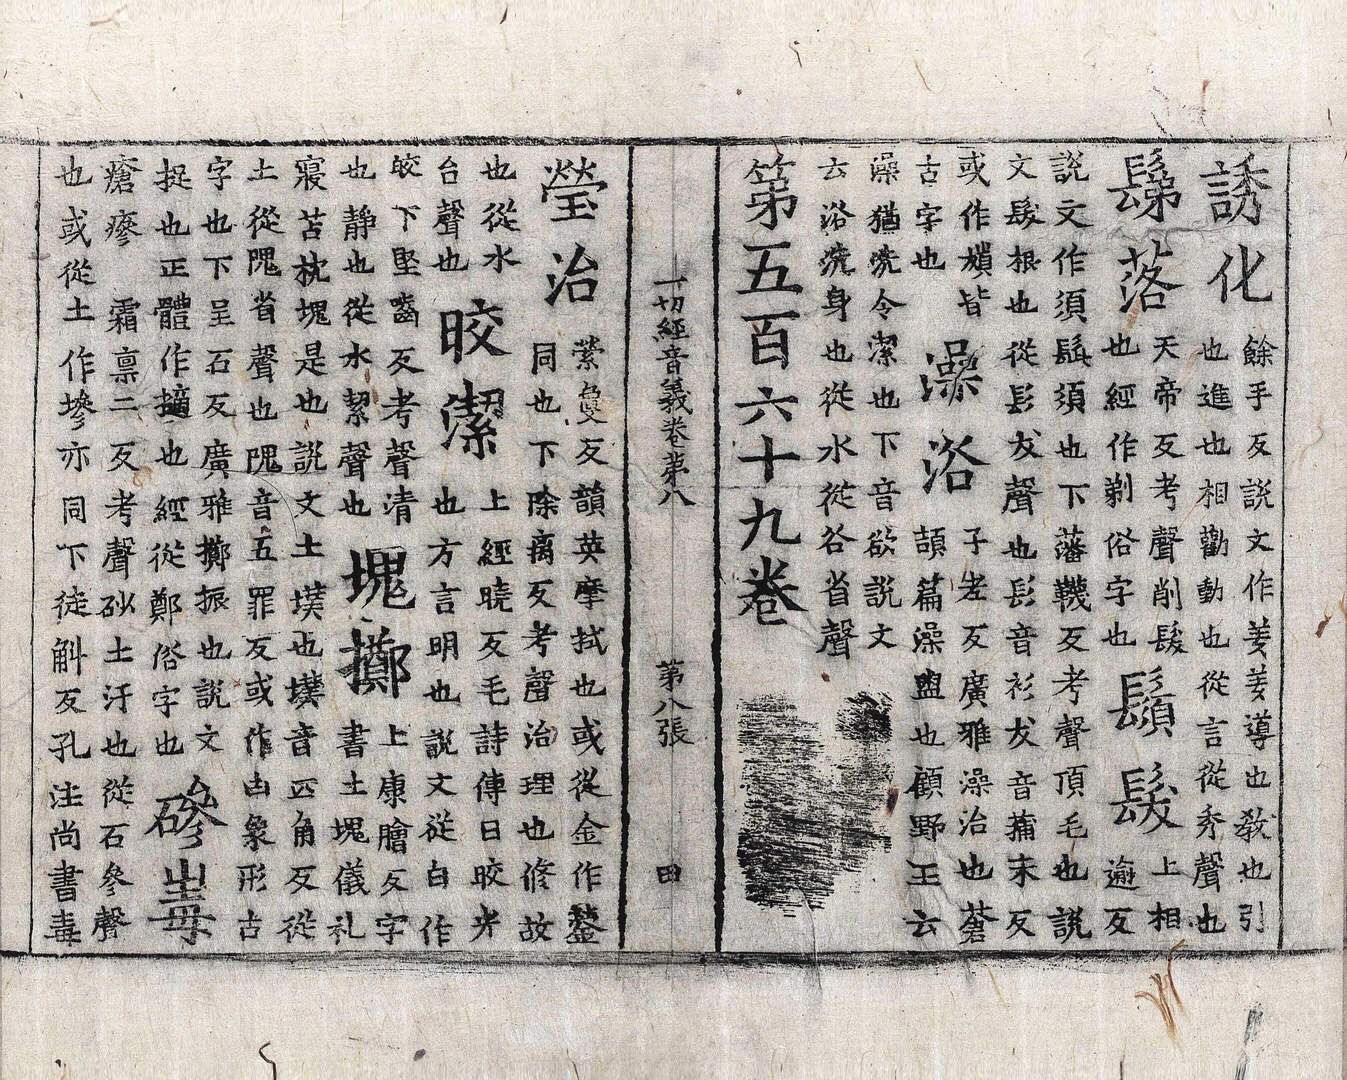 誘化
餘手反說文作羑羑導也教也引
也進也相勸動也從言從秀聲也
鬀落
天帝反考聲削髮
也經作剃俗字也
鬚髮
上相
逾反
說文作須鬚須也下藩韈反考聲頂毛也說
文髮根也從髟犮聲也髟音衫犮音蒱末反
或作䫙皆
古字也
澡浴
子老反廣雅澡治也蒼
頡篇澡盥也顧野王云
澡猶洗令潔也下音欲說文
云浴洗身也從水從谷省聲
第五百六十九卷
一切經音義卷第八 第八張 田
瑩治
縈敻反韻英摩拭也或從金作鎣
同也下除离反考聲治理也修故
也從水
台聲也
皎潔
上經曉反毛詩傳曰皎光
也方言明也說文從白作
皎下堅齧反考聲清
也静也從水絜聲也
塊擲
上康膾反字
書土塊儀礼
寢苫枕塊是也說文土墣也墣音匹角反從
土從隗省聲也隗音五罪反或作凷象形古
字也下呈石反廣雅擲振也說文
捉也正體作擿也經從鄭俗字也
磣毒
瘡瘮 霜稟二反考聲砂土汙也從石參聲
也或從土作墋亦同下徒斛反孔注尚書毒